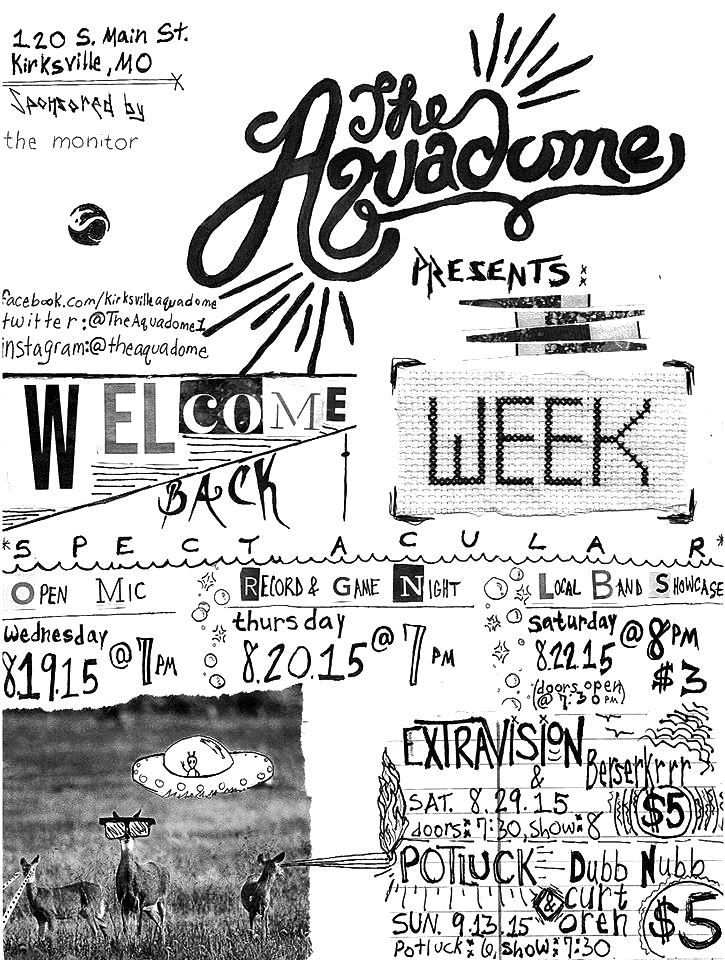 120 S. Main St.
Kirksville, MO
Sponsored by
the monitor
The
Aquadome
PRESENTS:
facebook.com/kirksvilleaquadome
twitter:@TheAquadome1
instagram:@theaquadome
WELCOME
BACK
WEEK
*SPECTACULAR*
OPEN MIC
wednesday
8.19.15 @ 7 PM
RECORD & GAME NIGHT
thursday
8.20.15 @ 7 PM
LOCAL BAND SHOWCASE
saturday
8.22.15 @ 8 PM
(doors open
@ 7:30 PM)
$3
EXTRAVISION
& Berserkrrr
SAT. 8.29.15
doors: 7:30, show: 8
$5
POTLUCK - Dubb Nubb
& curt
oren
SUN. 9.13.15
Potluck: 6, show: 7:30
$5